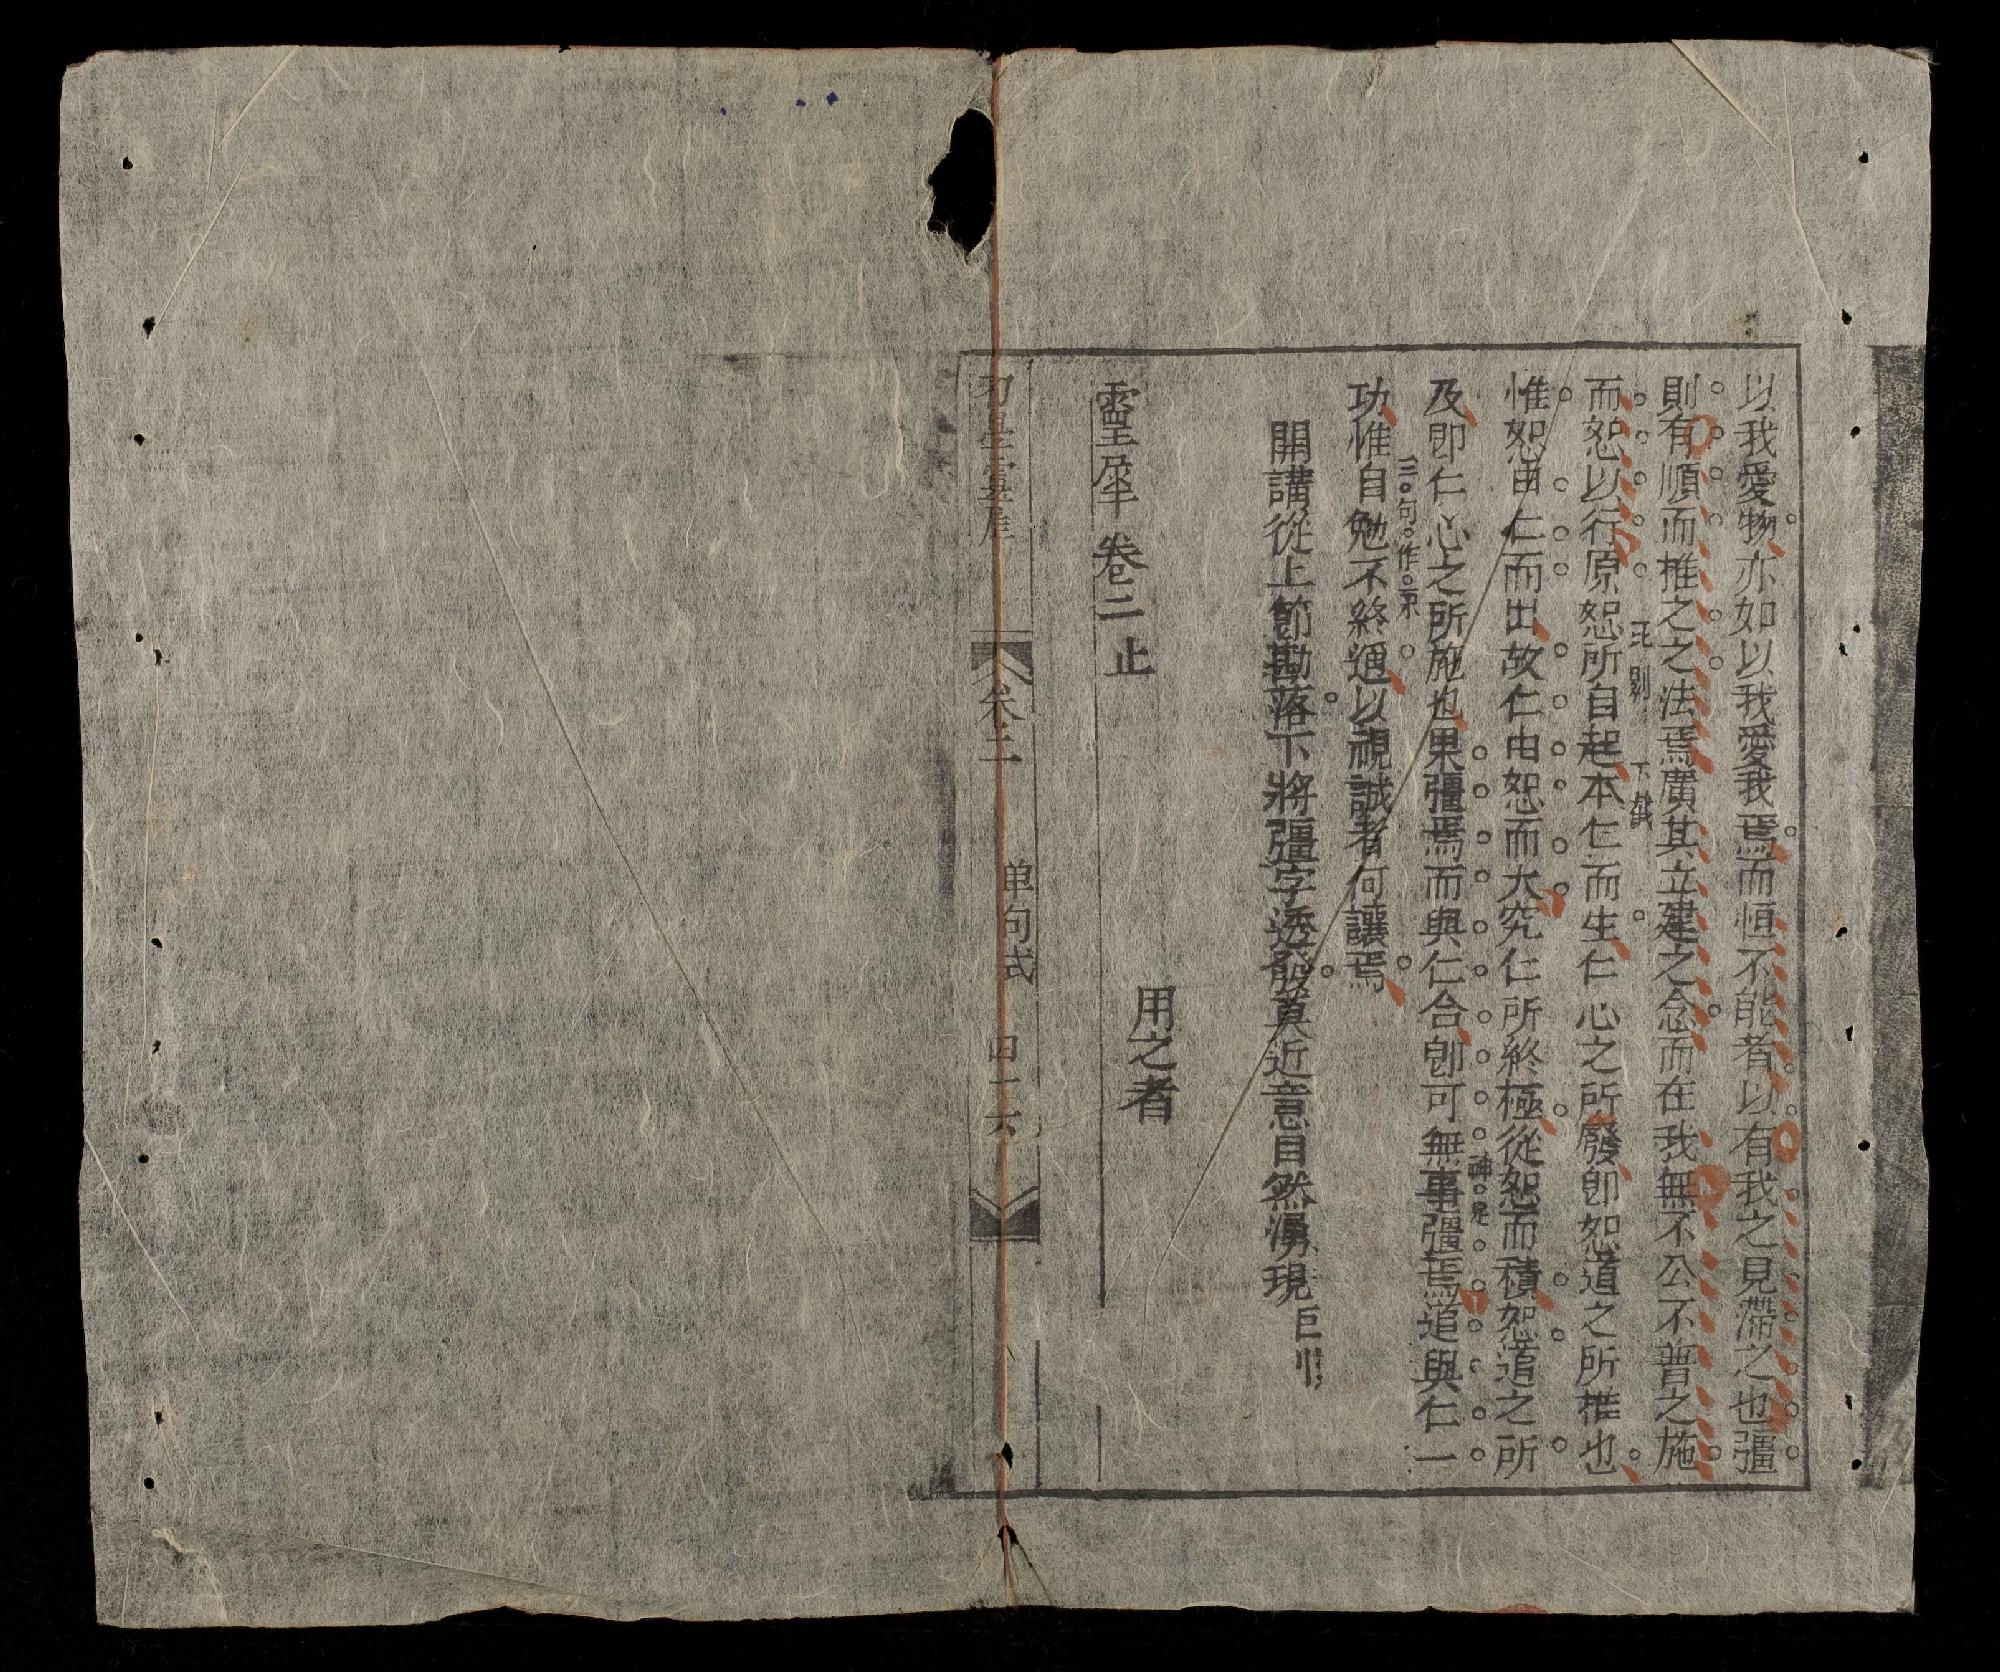 以我愛物亦如以我愛我焉而恒不能者以有我之見滯之也彊
則有順而推之之法焉廣其立建之念而在我無不公不普之施
而恕以行原恕所自起本仁而生仁心之所發卽恕道之所推也
惟恕由仁而出故仁由恕而大究仁所終極從恕而積恕道之所
神是
及卽仁心之所施也果彊焉而與仁合卽可無事彊焉道與仁一
三句作
功惟自勉不終週以視誠者何讓焉
開講從上節勘落下將彊字透發莫近意自然湧現
靈犀卷二止
用之者
卷二
单句式